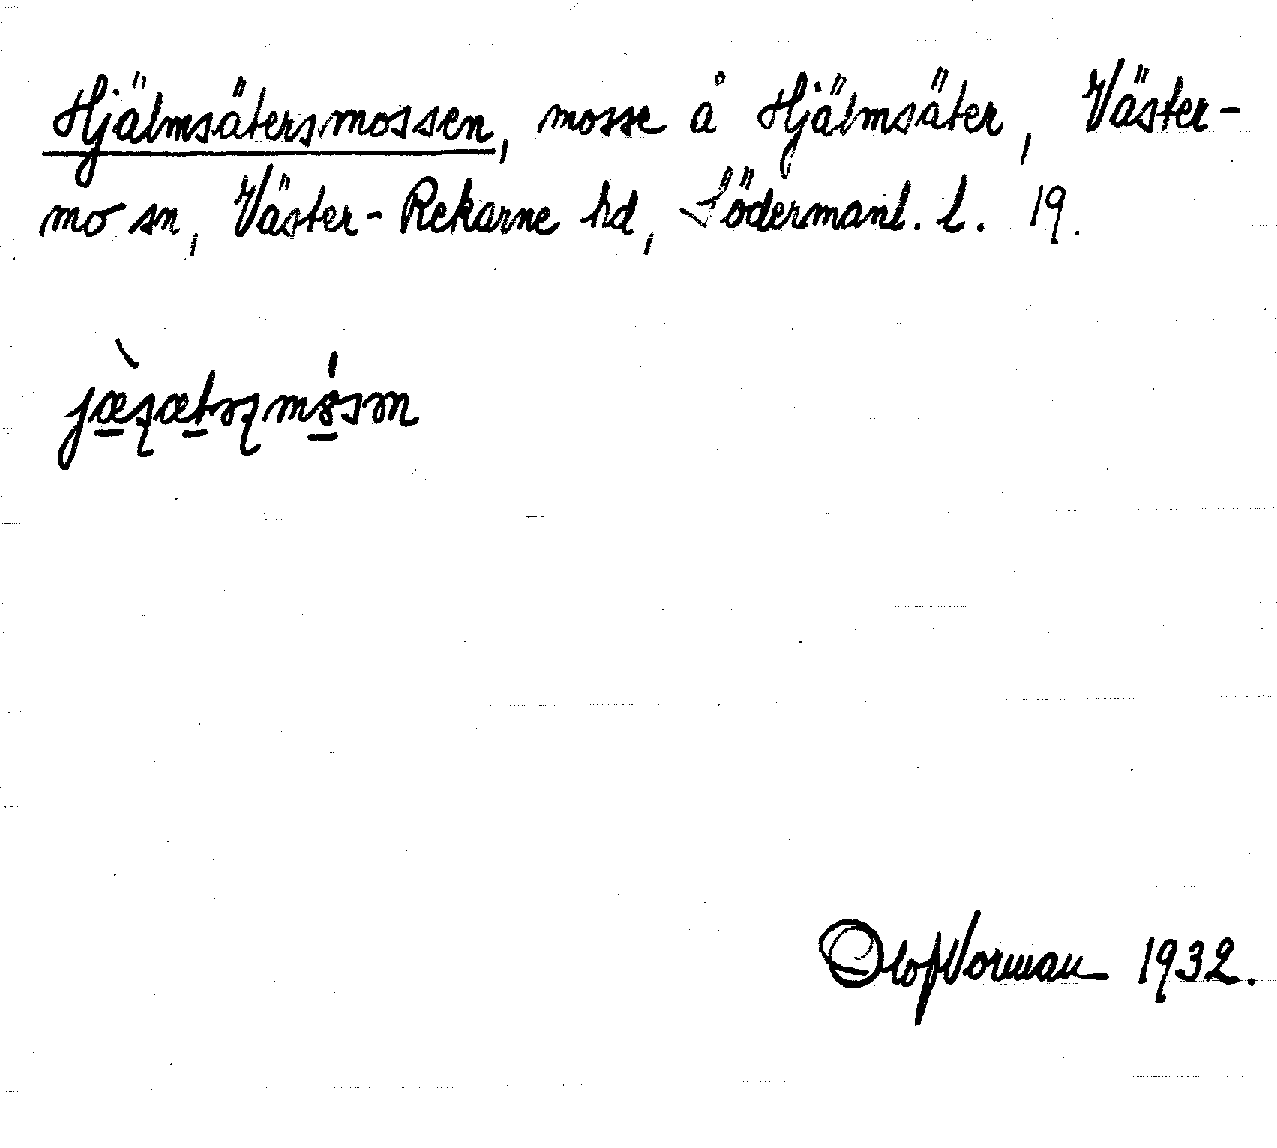 Hjälmsätersmossen, mosse å Hjälmsäter, Väster-
mo sn, Väster-Rekarne hd, Södermanl. l. 19.
Olof Vorman 1932.